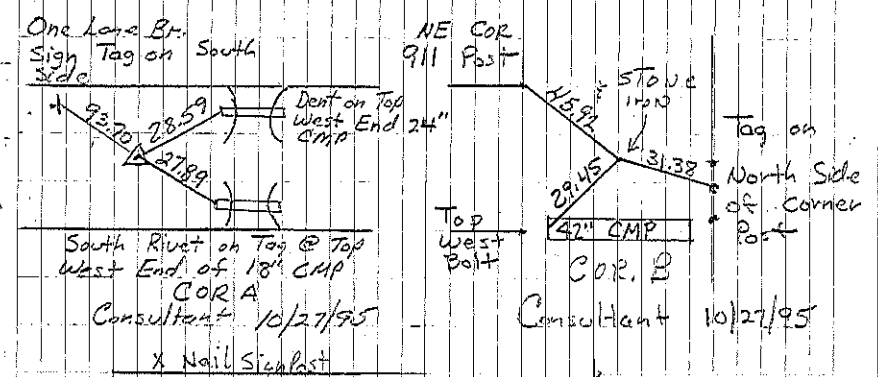 One Lane Br.
Sign Tag on South
Side
93.70
28.59
27.89
Dent on Top
West End 24"
CMP
South Rivet on Tag @ Top
West End of 18" CMP
COR A
Consultant 10/27/95
X Nail Sign Post
NE COR
911 Post
45.92
STONE
IRON
31.38
29.45
Tag on
North Side
of Corner
Post
Top
West
Bolt
42" CMP
COR. B
Consultant 10/27/95